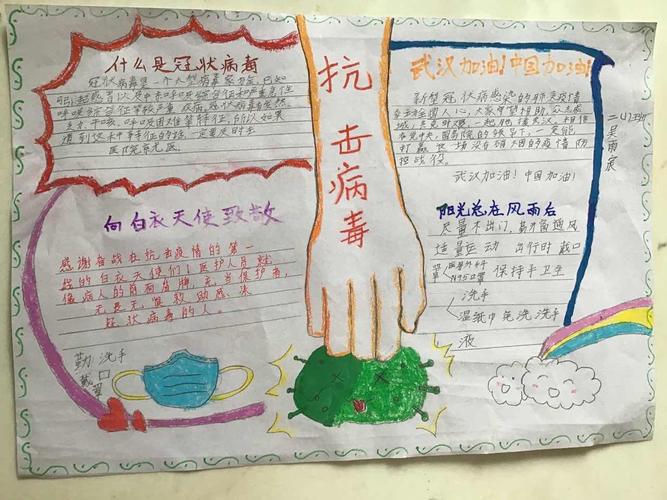 什么是冠状病毒
冠状病毒是一个大型病毒家族,已知
可引起感冒以及中东呼吸综合征和严重急性
呼吸综合征等较严重疾病。冠状病毒有发热
呼吸困难等特征,所以如果
遇到这种特征的话,一定要及时去
医院就医
抗
击
病
毒
武汉加油!中国加油!
新型冠状病感染的肺炎疫情
牵动全国人心,大家守望相助,众志成
城,
党中央、国务院的领导下,一定能
打赢这场没有硝烟的疫情防
控战役。
武汉加油!中国加油!
二(1)班
吴雨宸
向白衣天使致敬
感谢奋战在抗击疫情的第一
线的白衣天使们!医护人员就
像病人的盾牌,充当保护者,
无畏无惧救助感染
冠状病毒的人。
阳光总在风雨后
尽量不出门,多开窗通风
适量运动 出行时戴口
罩 医用外科
N95口罩 保持手卫生
洗手
湿纸巾 免洗洗手
液
勤洗手
戴口
罩